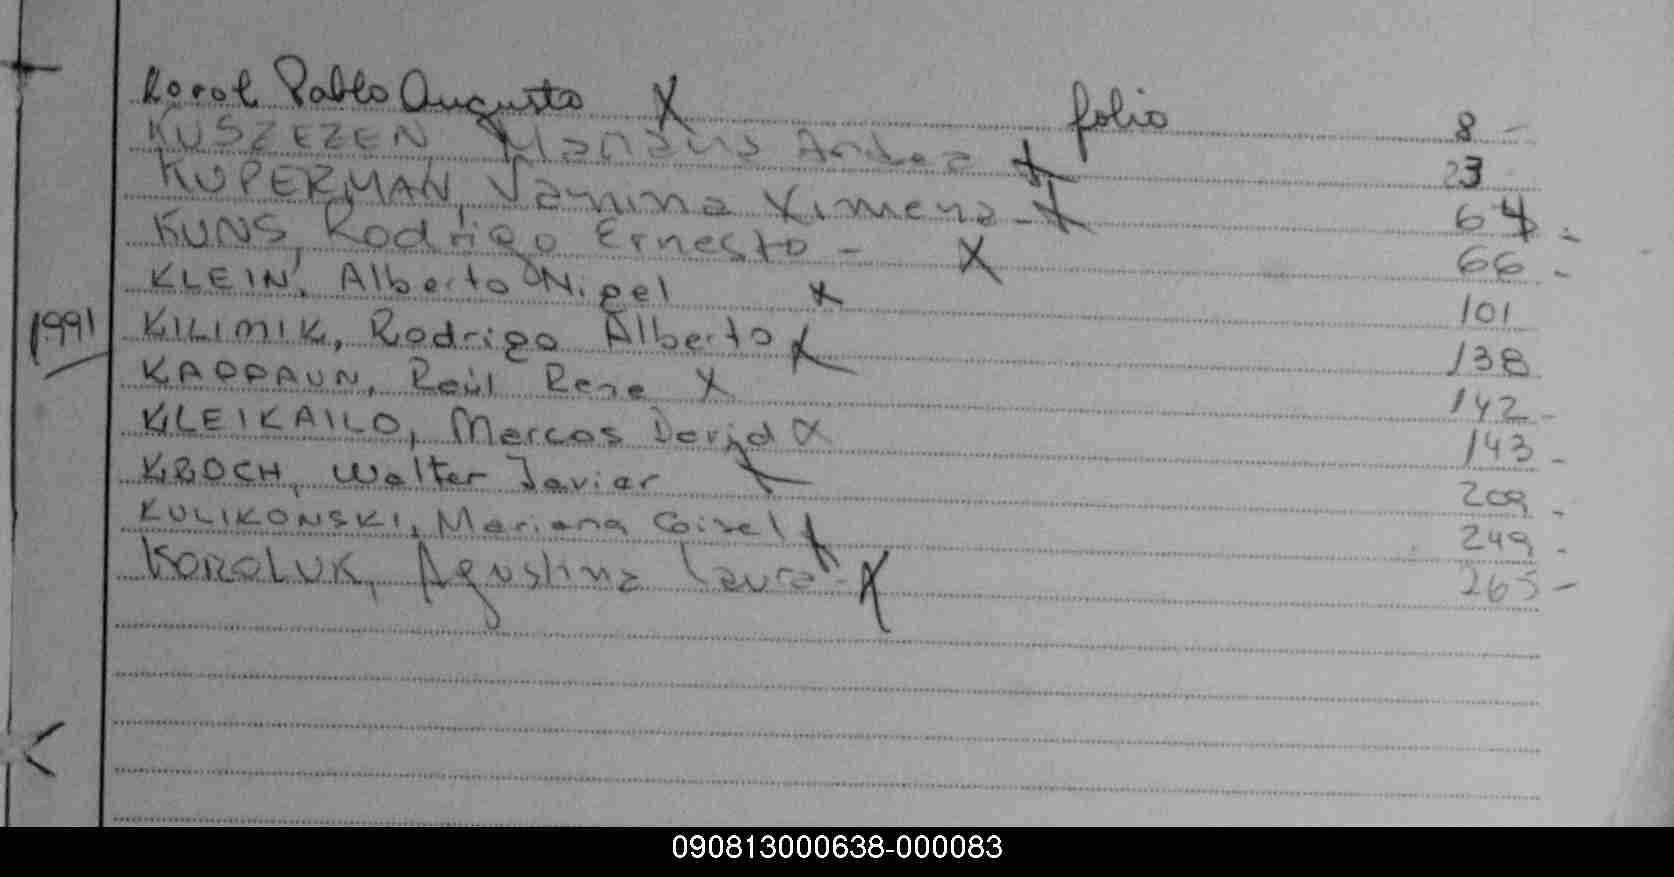 Korol Pablo Augusto X folio 8 -
KUSZEZEN Mariana Andea X 23
KUPERMAN, Yanina Ximena - X 64 -
KUNS, Rodrigo Ernesto - X 66 -
KLEIN, Alberto Nigel X 101
1991 KILIMIK, Rodrigo Alberto X 138
KAPPAUN, Raúl Rene X 142 -
KLEIKAILO, Marcos David X 143 -
KROCH, Walter Javier X 209 -
KULIKONSKI, Mariana Gisel X 249 -
KOROLUK, Agustina Laura - X 265 -
K
090813000638-000083